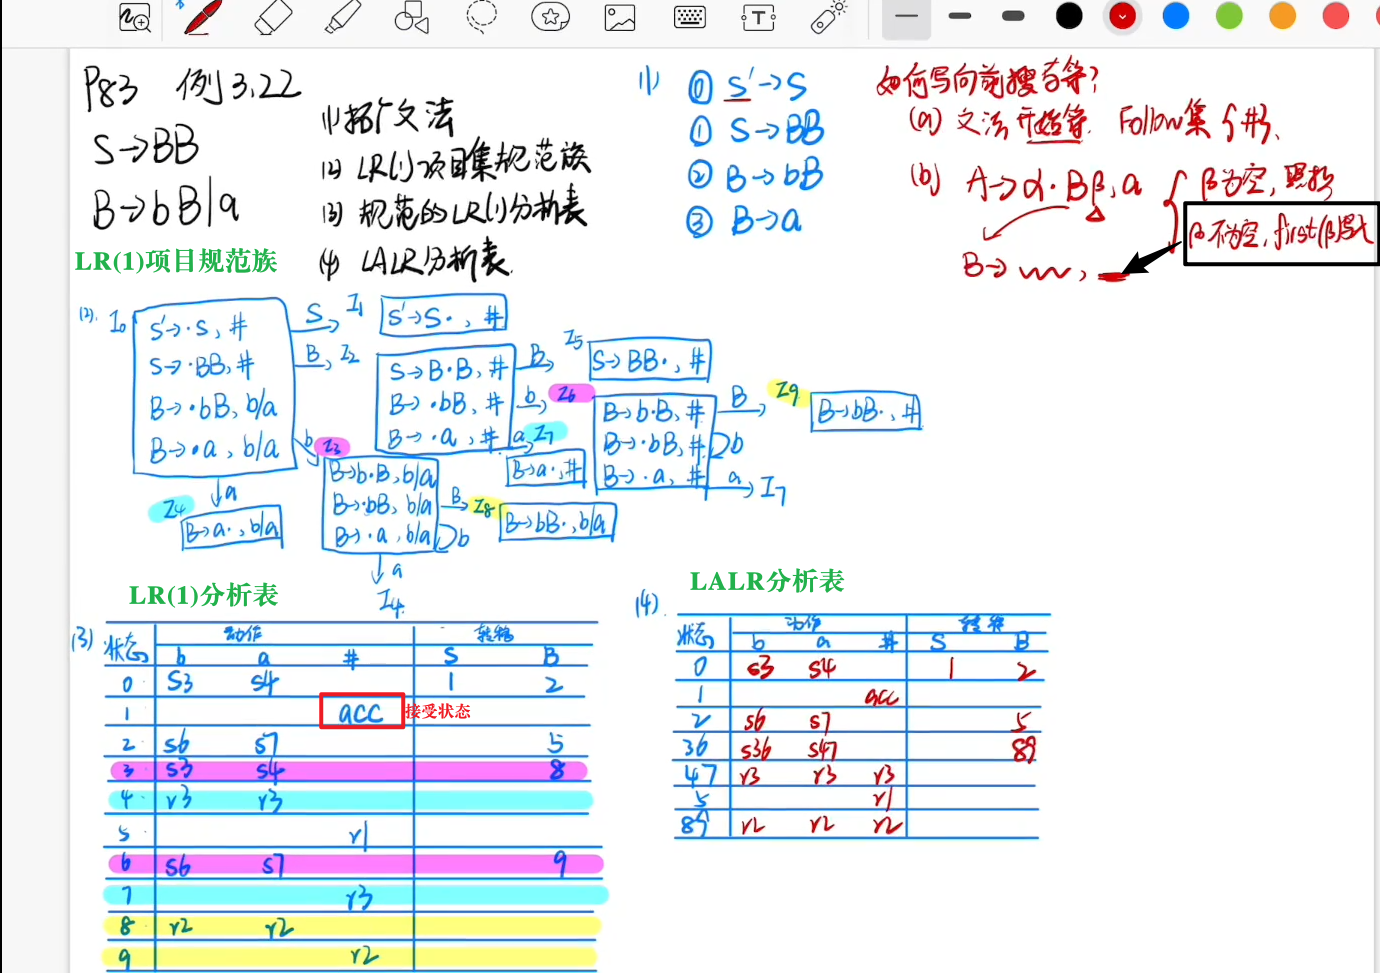 P83 例3.22
S→BB
B→bB|a
(1) 拓广文法
(2) LR(1)项目集规范族
(3) 规范的LR(1)分析表
(4) LALR分析表.
(1) ⓪ S'→S
① S→BB
② B→bB
③ B→a
如何写向前搜索符?
(a) 文法开始符. Follow集 {#}.
(b) A→α·Bβ, a
β为空, 照抄
β不为空, first(β)
B→ ,
LR(1)项目规范族
(2). I0
S'→·S, #
S→·BB, #
B→·bB, b/a
B→·a, b/a
S I1
S'→S·, #
B I2
S→B·B, #
B→·bB, #
B→·a, #
B I5
S→BB·, #
b I6
B→b·B, #
B→·bB, #
B→·a, #
b
a I7
B I9
B→bB·, #
a I7
B→a·, #
b I3
B→b·B, b/a
B→·bB, b/a
B→·a, b/a
b
B I8
B→bB·, b/a
a
I4
a
I4
B→a·, b/a
LR(1)分析表
(3) 状态 动作 转移
b a # S B
0 s3 s4 1 2
1 acc 接受状态
2 s6 s7 5
3 s3 s4 8
4 r3 r3
5 r1
6 s6 s7 9
7 r3
8 r2 r2
9 r2
LALR分析表
(4). 状态 动作 转移
b a # S B
0 s3 s4 1 2
1 acc
2 s6 s7 5
36 s36 s47 89
47 r3 r3 r3
5 r1
89 r2 r2 r2